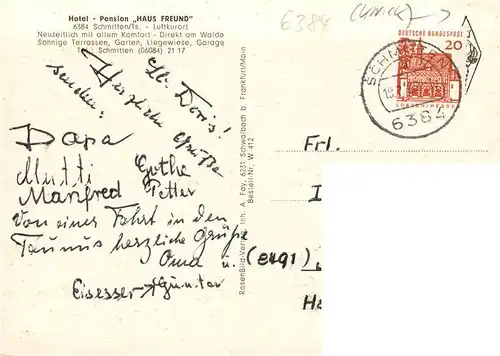 Hotel - Pension „HAUS FREUND"
6384 Schmitten/Ts. - Luftkurort
Neuzeitlich mit allem Komfort - Direkt am Walde
Sonnige Terrassen, Garten, Liegewiese, Garage
Tel.: Schmitten (06084) 21 17
6384
DEUTSCHE BUNDESPOST
20
LORSCH/HESSEN
SCHMITTEN
6384
Doris!
Herzliche Grüße
senden:
Papa
Mutti
Manfred Petter
Von einer Fahrt in den
Taunus herzliche Grüße
Oma u.
Günter
RosenBild-Verlag, Inh. A. Fay, 6231 Schwalbach b. Frankfurt/Main
Bestell-Nr. W 412
Frl.